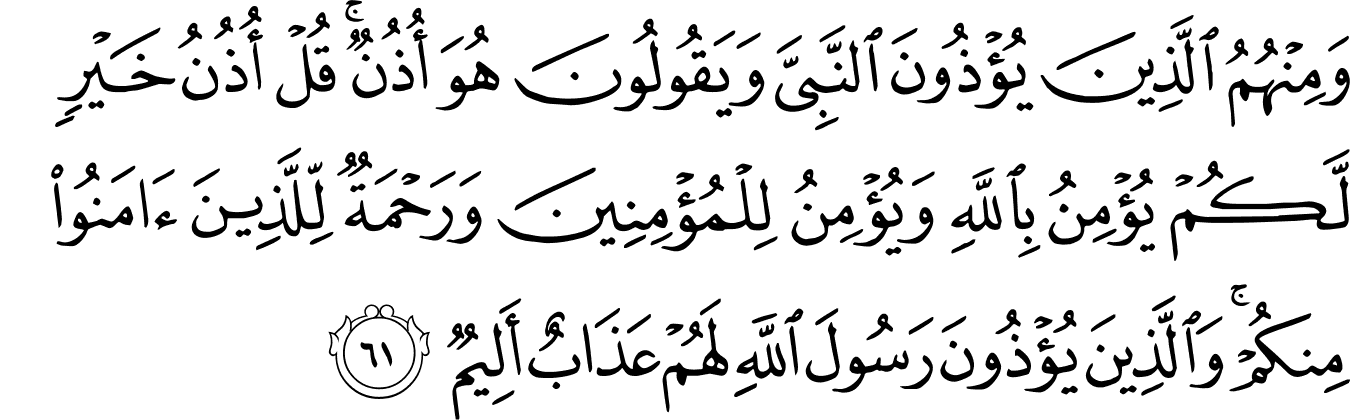 وَمِنْهُمُ ٱلَّذِينَ يُؤْذُونَ ٱلنَّبِىَّ وَيَقُولُونَ هُوَ أُذُنٌۭ ۚ قُلْ أُذُنُ خَيْرٍۢ
لَّكُمْ يُؤْمِنُ بِٱللَّهِ وَيُؤْمِنُ لِلْمُؤْمِنِينَ وَرَحْمَةٌۭ لِّلَّذِينَ ءَامَنُوا۟
مِنكُمْ ۚ وَٱلَّذِينَ يُؤْذُونَ رَسُولَ ٱللَّهِ لَهُمْ عَذَابٌ أَلِيمٌۭ ٦١